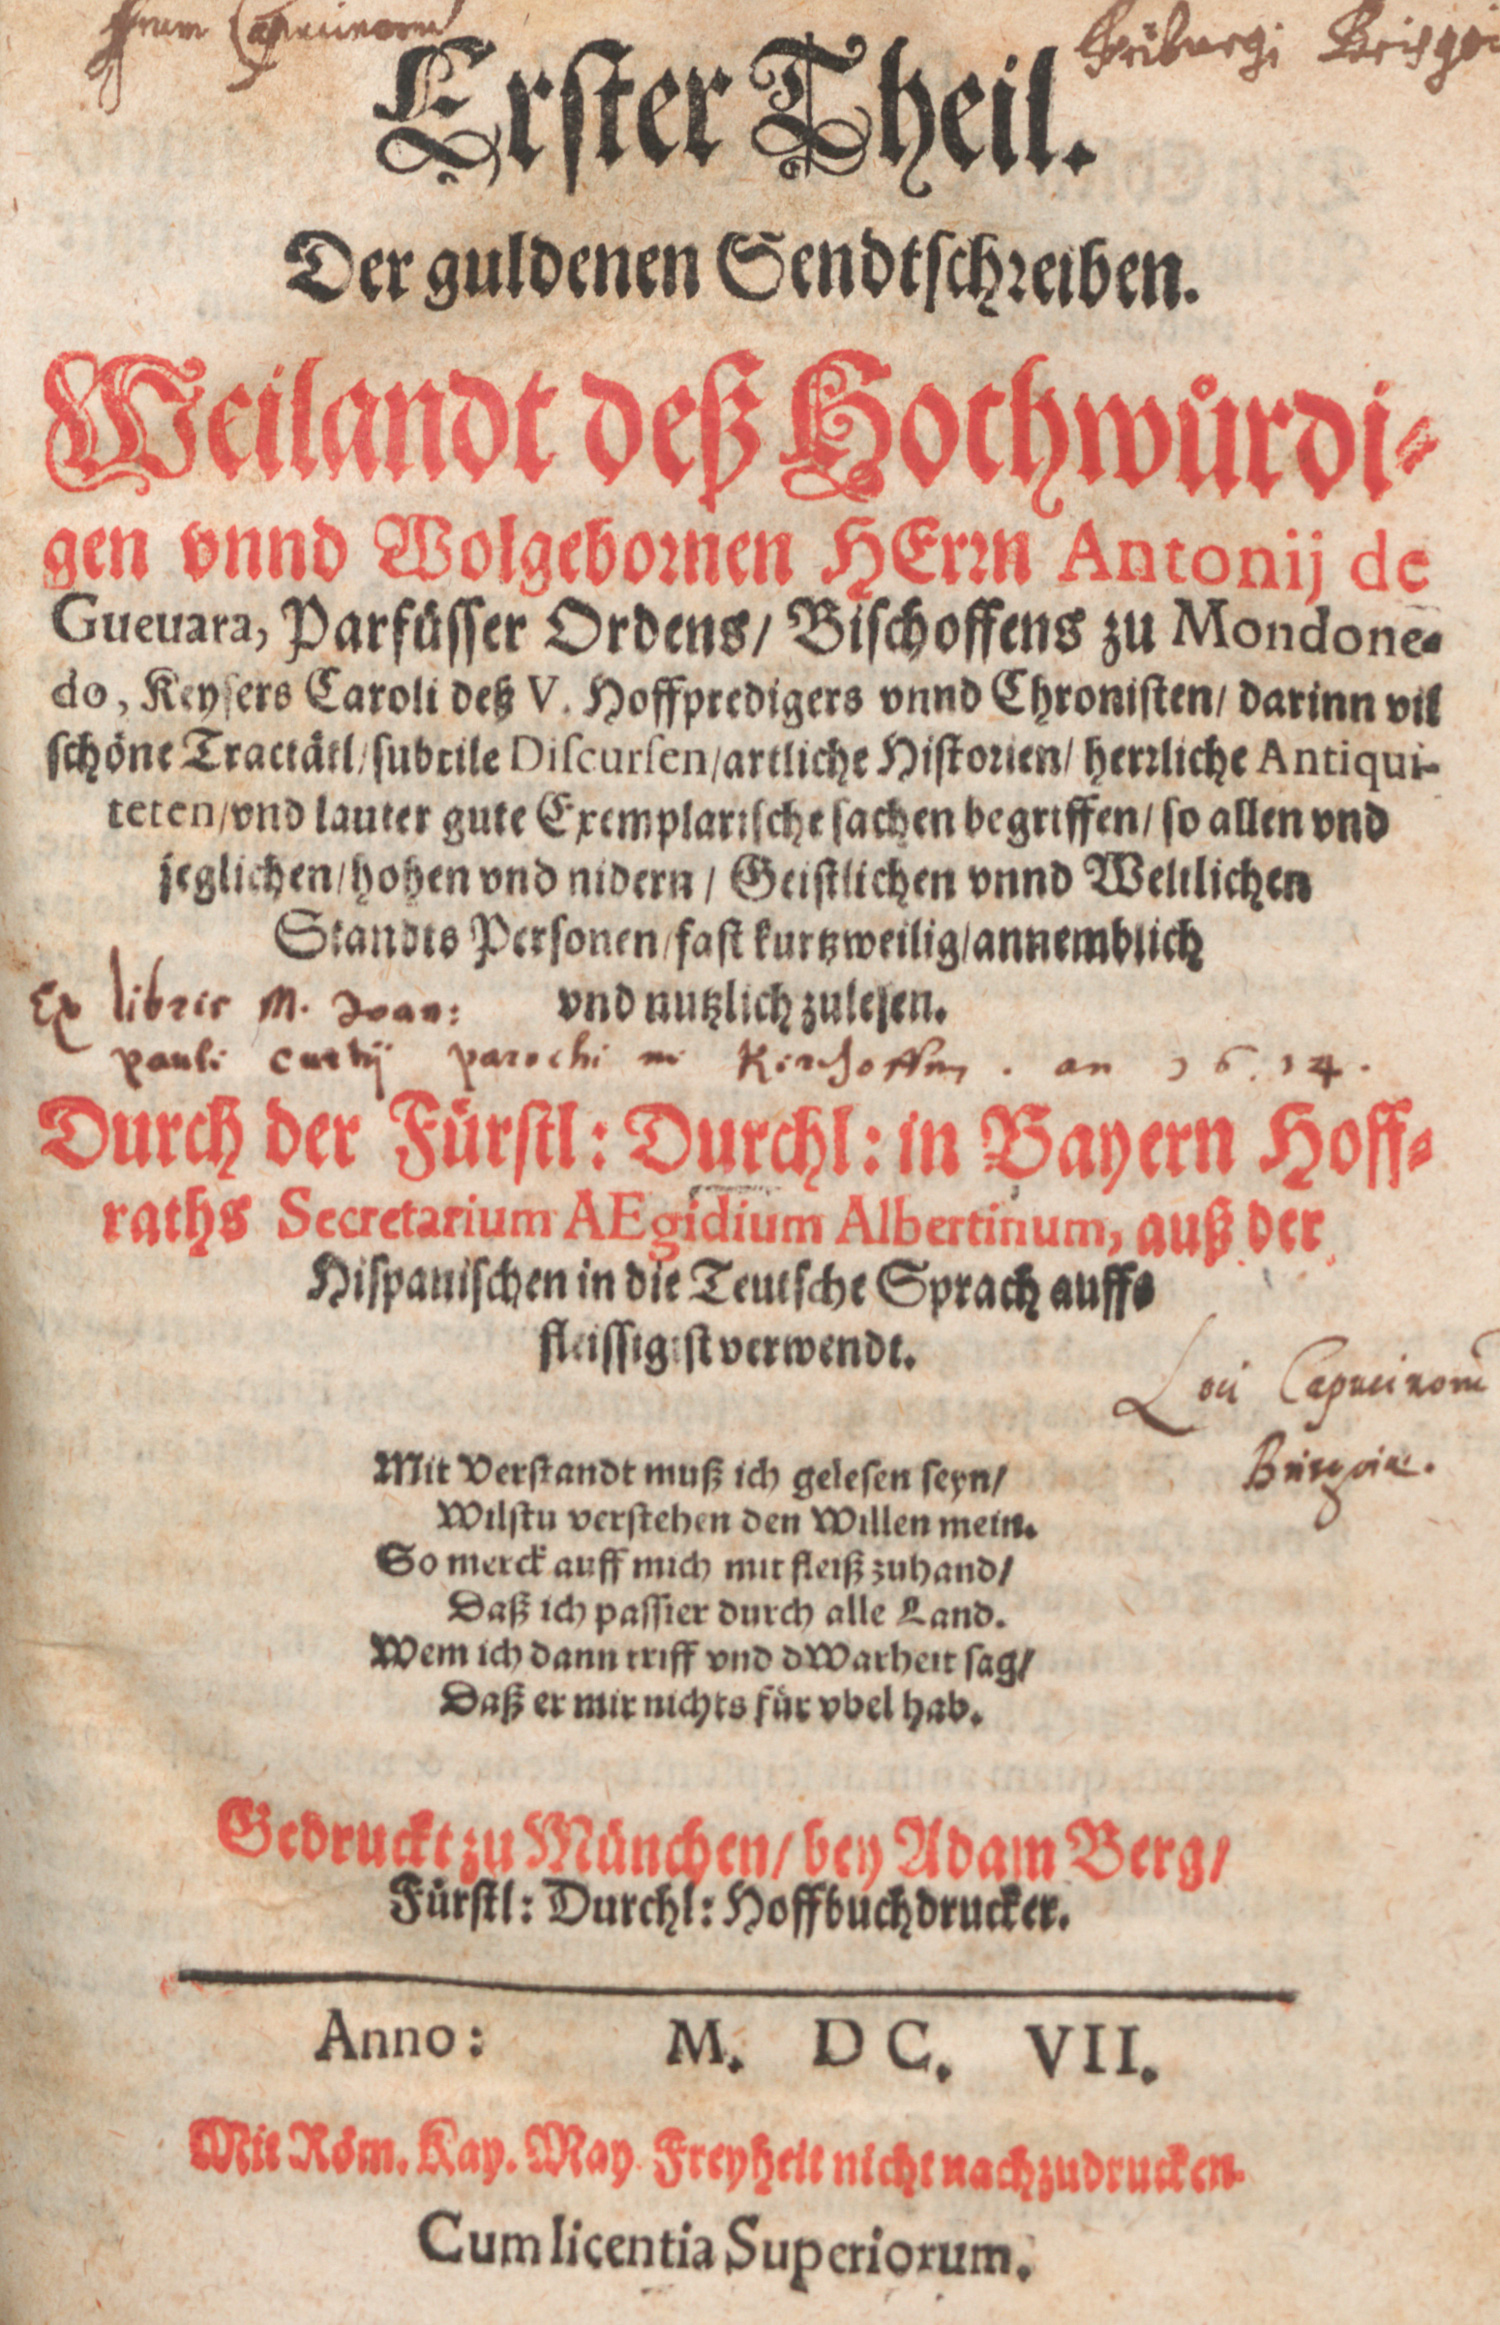 Capucinorum
Friburgi Brisgoi
Erster Theil.
Der guldenen Sendtschreiben.
Weilandt deß Hochwůrdi-
gen vnnd Wolgebornen HErrn Antonij de
Gueuara, Parfůsser Ordens/ Bischoffens zu Mondone-
do, Keysers Caroli deß V. Hoffpredigers vnnd Chronisten/ darinn vil
schöne Tractätl/ subtile Discursen/ artliche Historien/ herrliche Antiqui-
teten/ vnd lauter gute Exemplarische sachen begriffen/ so allen vnd
jeglichen/ hohen vnd nidern/ Geistlichen vnnd Weltlichen
Standts Personen/ fast kurtzweilig/ annemblich
vnd nutzlich zulesen.
Ex libris M. Joan:
pauli parochi in an 1614.
Durch der Fürstl: Durchl: in Bayern Hoff-
raths Secretarium AEgidium Albertinum, auß der
Hispanischen in die Teutsche Sprach auffs
fleissigist verwendt.
Loci Capucinorum
Mit Verstandt muß ich gelesen seyn/
Wilstu verstehen den Willen mein.
So merck auff mich mit fleiß zuhand/
Daß ich passier durch alle Land.
Wem ich dann triff vnd dWarheit sag/
Daß er mir nichts für vbel hab.
Gedruckt zu München/ bey Adam Berg/
Fürstl: Durchl: Hoffbuchdrucker.
Anno: M. DC. VII.
Mit Röm. Kay. May. Freyheit nicht nachzudrucken.
Cum licentia Superiorum.